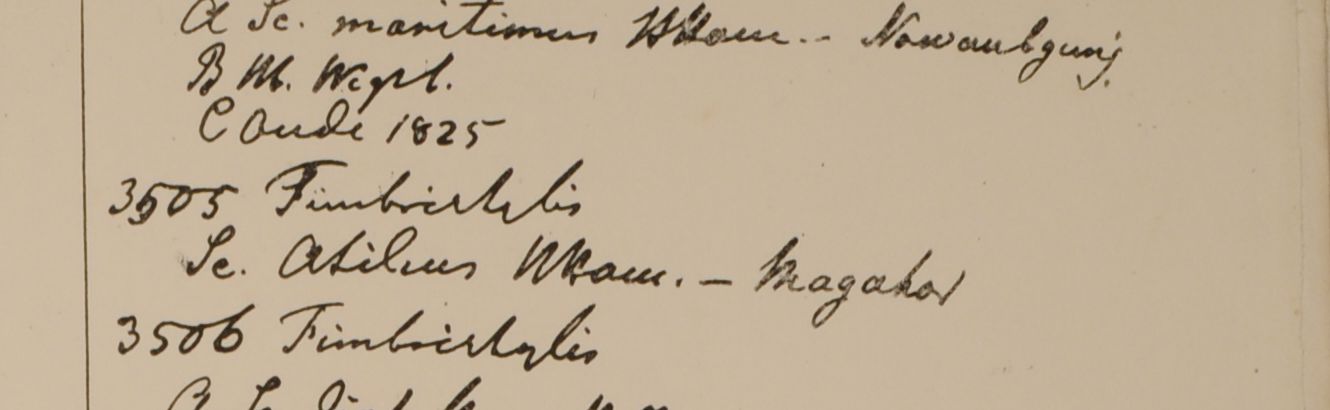 A Sc. maritimus HHam. – Nowaubgunj.
B M. Wept.
C Oude 1825
3505 Fimbristylis
Sc. HHam. – Magahor
3506 Fimbristylis